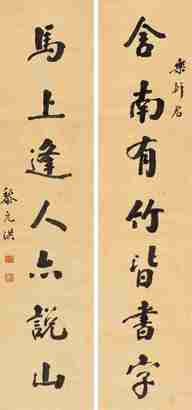 樂軒君
舍南有竹皆書字
馬上逢人亦說山
黎元洪